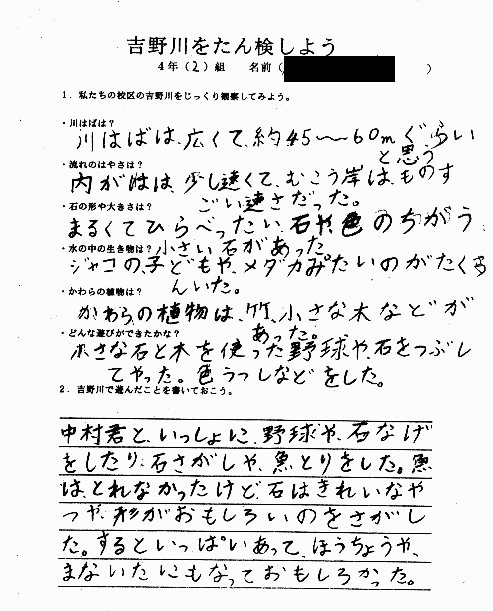 吉野川をたん検しよう
4年(2)組 名前( )
1．私たちの校区の吉野川をじっくり観察してみよう。
・川はばは？
川はばは、広くて、約45〜60mぐらい
と思う
・流れのはやさは？
内がは、少し速くて、むこう岸は、ものす
ごい速さだった。
・石の形や大きさは？
まるくてひらべったい、石や、色のちがう
小さい石があった
・水の中の生き物は？
ジャコの子どもや、メダカみたいのがたくさ
んいた。
・かわらの植物は？
かわらの植物は、竹、小さな木などが
あった。
・どんな遊びができたかな？
小さな石と木を使った野球や、石をつぶし
てやった。色うつしなどをした。
2．吉野川で遊んだことを書いておこう。
中村君と、いっしょに、野球や、石なげ
をしたり、石さがしや、魚とりをした。魚
は、とれなかったけど、石はきれいなや
つや、形がおもしろいのをさがし
た。するといっぱいあって、ほうちょうや、
まないたにもなっておもしろかった。